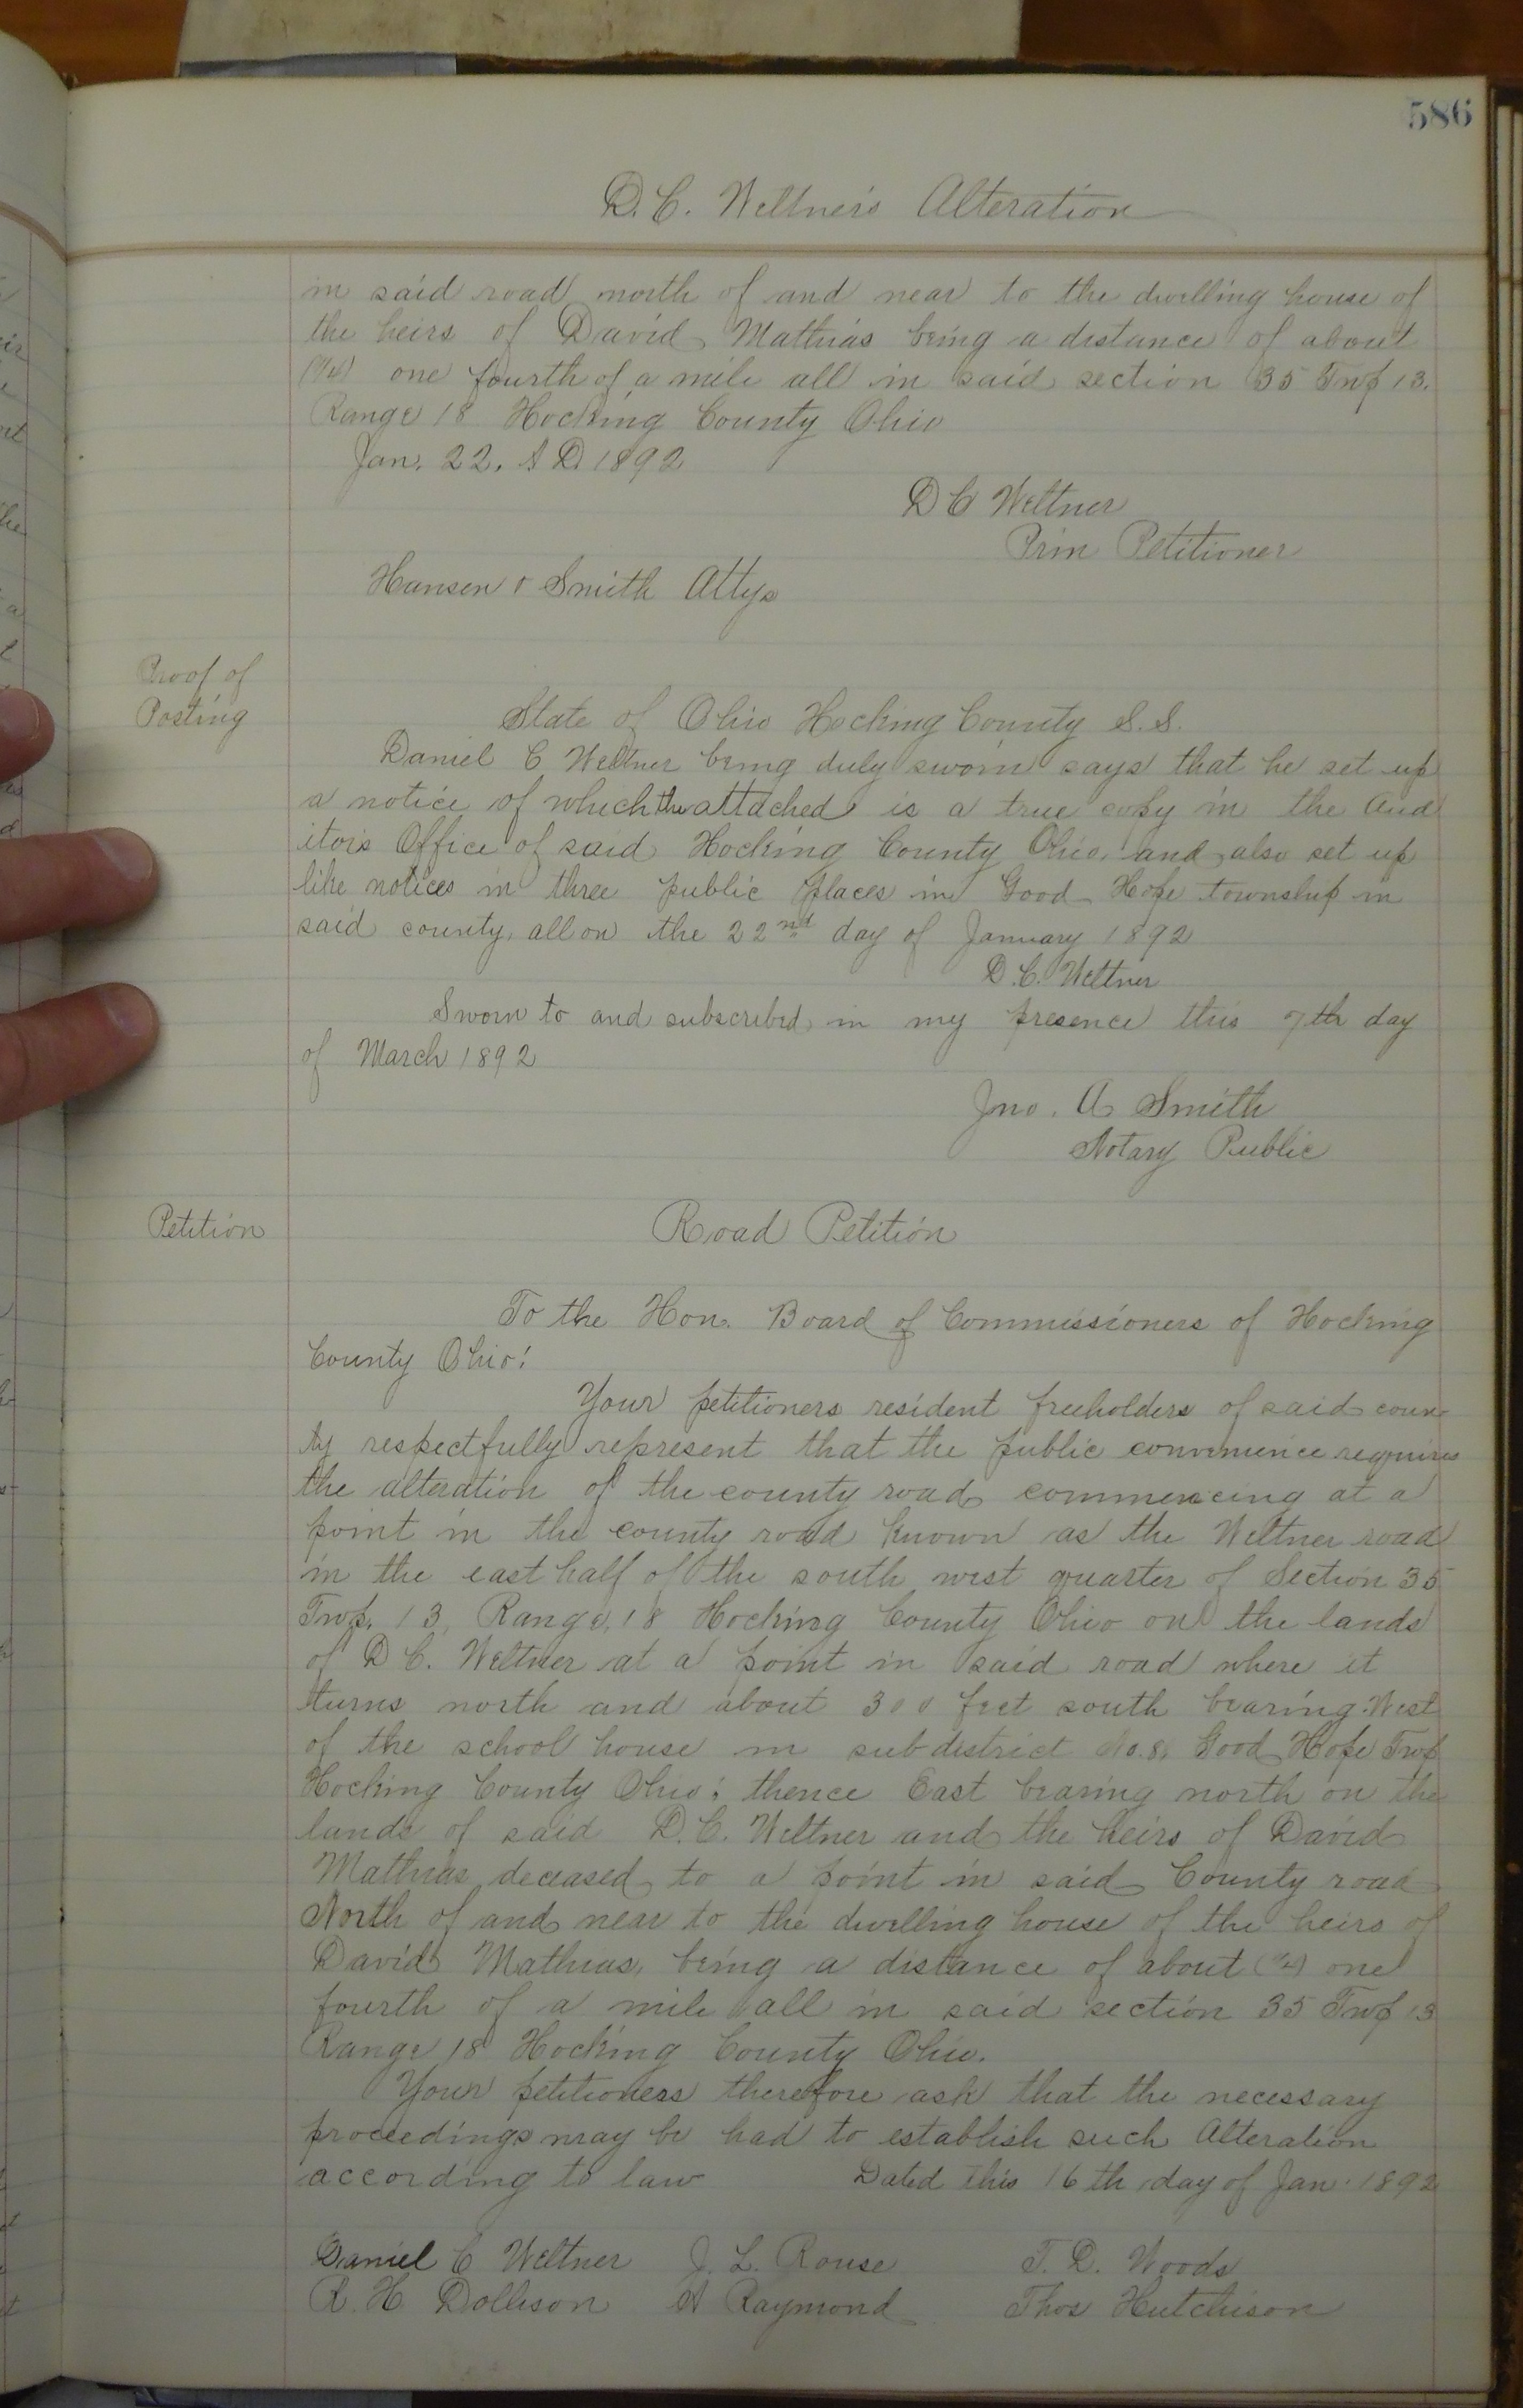 586
D. C. Weltner's Alteration
in said road north of and near to the dwelling house of
the heirs of David Mathias being a distance of about
(1/4) one fourth of a mile all in said section 35 Twp 13.
Range 18 Hocking County Ohio
Jan. 22. A D. 1892
D C Weltner
Prin Petitioner
Hansen & Smith Attys
Proof of
Posting
State of Ohio Hocking County S.S.
Daniel C Weltner being duly sworn says that he set up
a notice of which the attached is a true copy in the Aud
itor's Office of said Hocking County Ohio, and also set up
like notices in three public places in Good Hope township in
said county, all on the 22nd day of January 1892
D. C. Weltner
Sworn to and subscribed, in my presence this 7th day
of March 1892
Jno. A Smith
Notary Public
Petition
Road Petition
To the Hon. Board of Commissioners of Hocking
County Ohio:
Your petitioners resident freeholders of said coun
ty respectfully represent that the public convenience requires
the alteration of the county road commencing at a
point in the county road known as the Weltner road
in the east half of the south west quarter of Section 35
Twp. 13, Range, 18 Hocking County Ohio on the lands
of D C. Weltner at a point in said road where it
turns north and about 300 feet south bearing West
of the school house in subdistrict No. 8, Good Hope Twp
Hocking County Ohio; thence East bearing north on the
lands of said D. C. Weltner and the heirs of David
Mathias deceased to a point in said County road
North of and near to the dwelling house of the heirs of
David Mathias, being a distance of about (1/4) one
fourth of a mile all in said section 35 Twp 13
Range 18 Hocking County Ohio.
Your petitioners therefore ask that the necessary
proceedings may be had to establish such Alteration
according to law Dated this 16th day of Jan. 1892
Daniel C Weltner J. L. Rouse T. D. Woods
R. H Dollison A Raymond Thos Hutchison